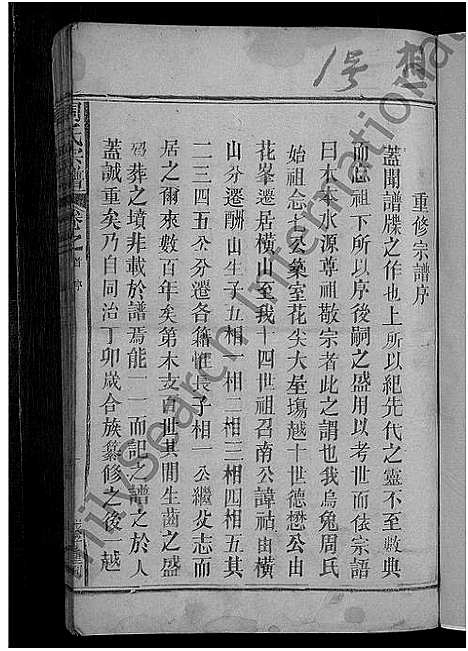 相一号
重修宗譜序
蓋聞譜牒之作也上所以紀先代之靈不至數典
而忘祖下所以序後嗣之盛用以考世而俵宗語
曰木本水源尊祖敬宗者此之謂也我烏兔周氏
始祖念七公築室花尖大垒塲越十世德懋公由
花峯遷居橫山至我十四世祖召南公諱祜由橫
山分遷酬山生子五相一相二相三相四相五其
二三四五公分遷各籍惟長子相一公繼父志而
居之爾來數百年矣第木支百世其間生齒之盛
葬之墳非載於譜焉能一一而記之譜之於人
蓋誠重矣乃自同治丁卯歲合族纂修之後一越
周氏宗譜 卷之首 序
milli-search International